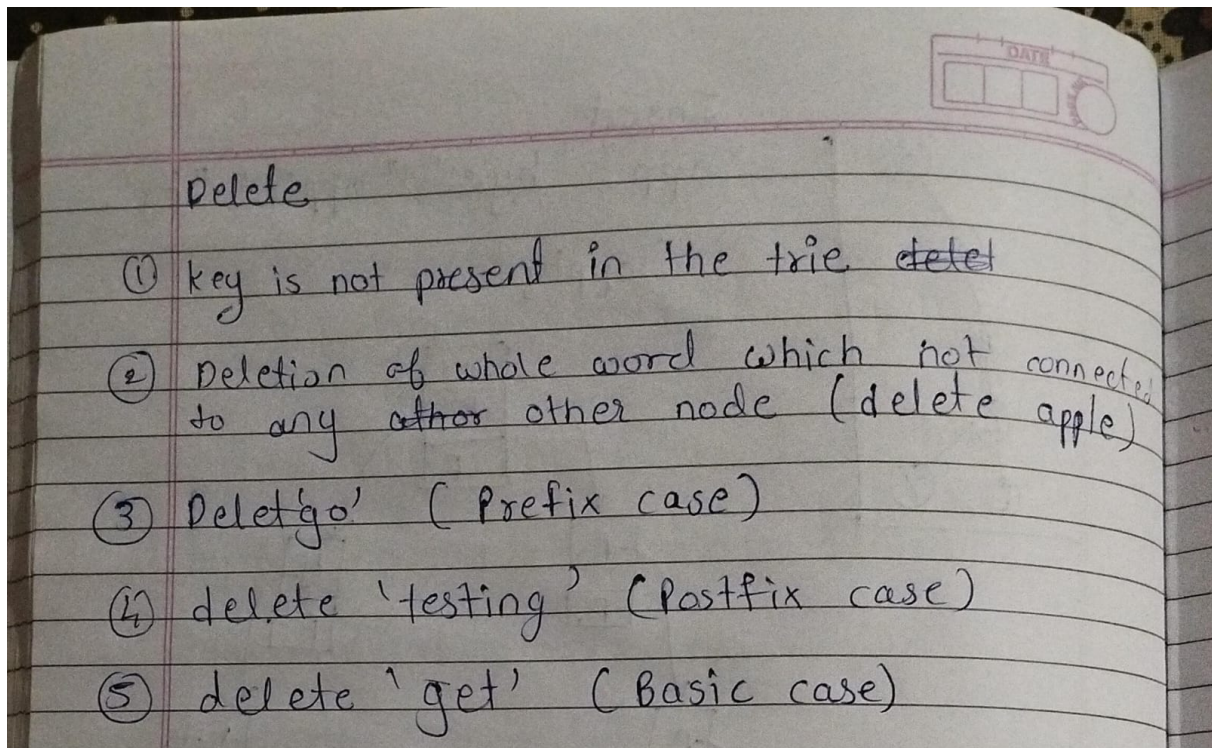 DATE
Delete
① key is not present in the trie detel
② Deletion of whole word which not connected
to any othor other node (delete apple)
③ Delet 'go' (Prefix case)
④ delete 'testing' (Postfix case)
⑤ delete 'get' (Basic case)